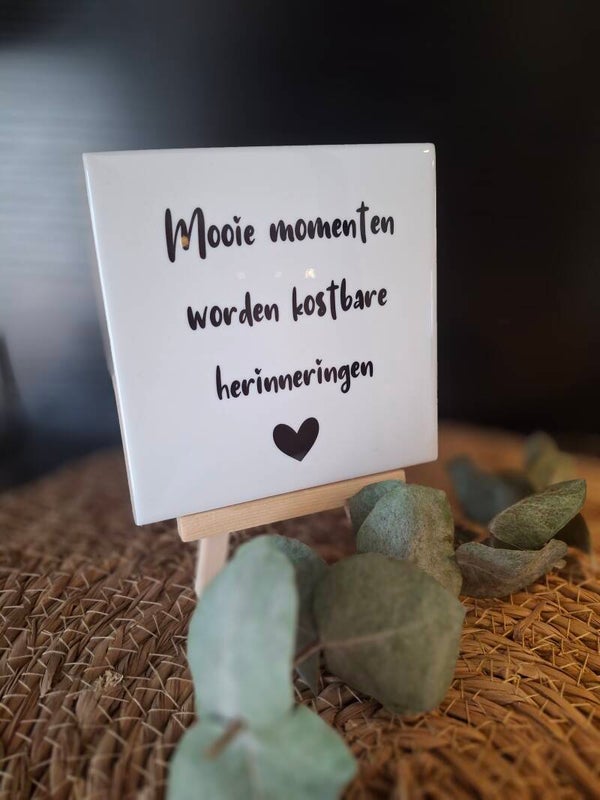 Mooie momenten
worden kostbare
herinneringen